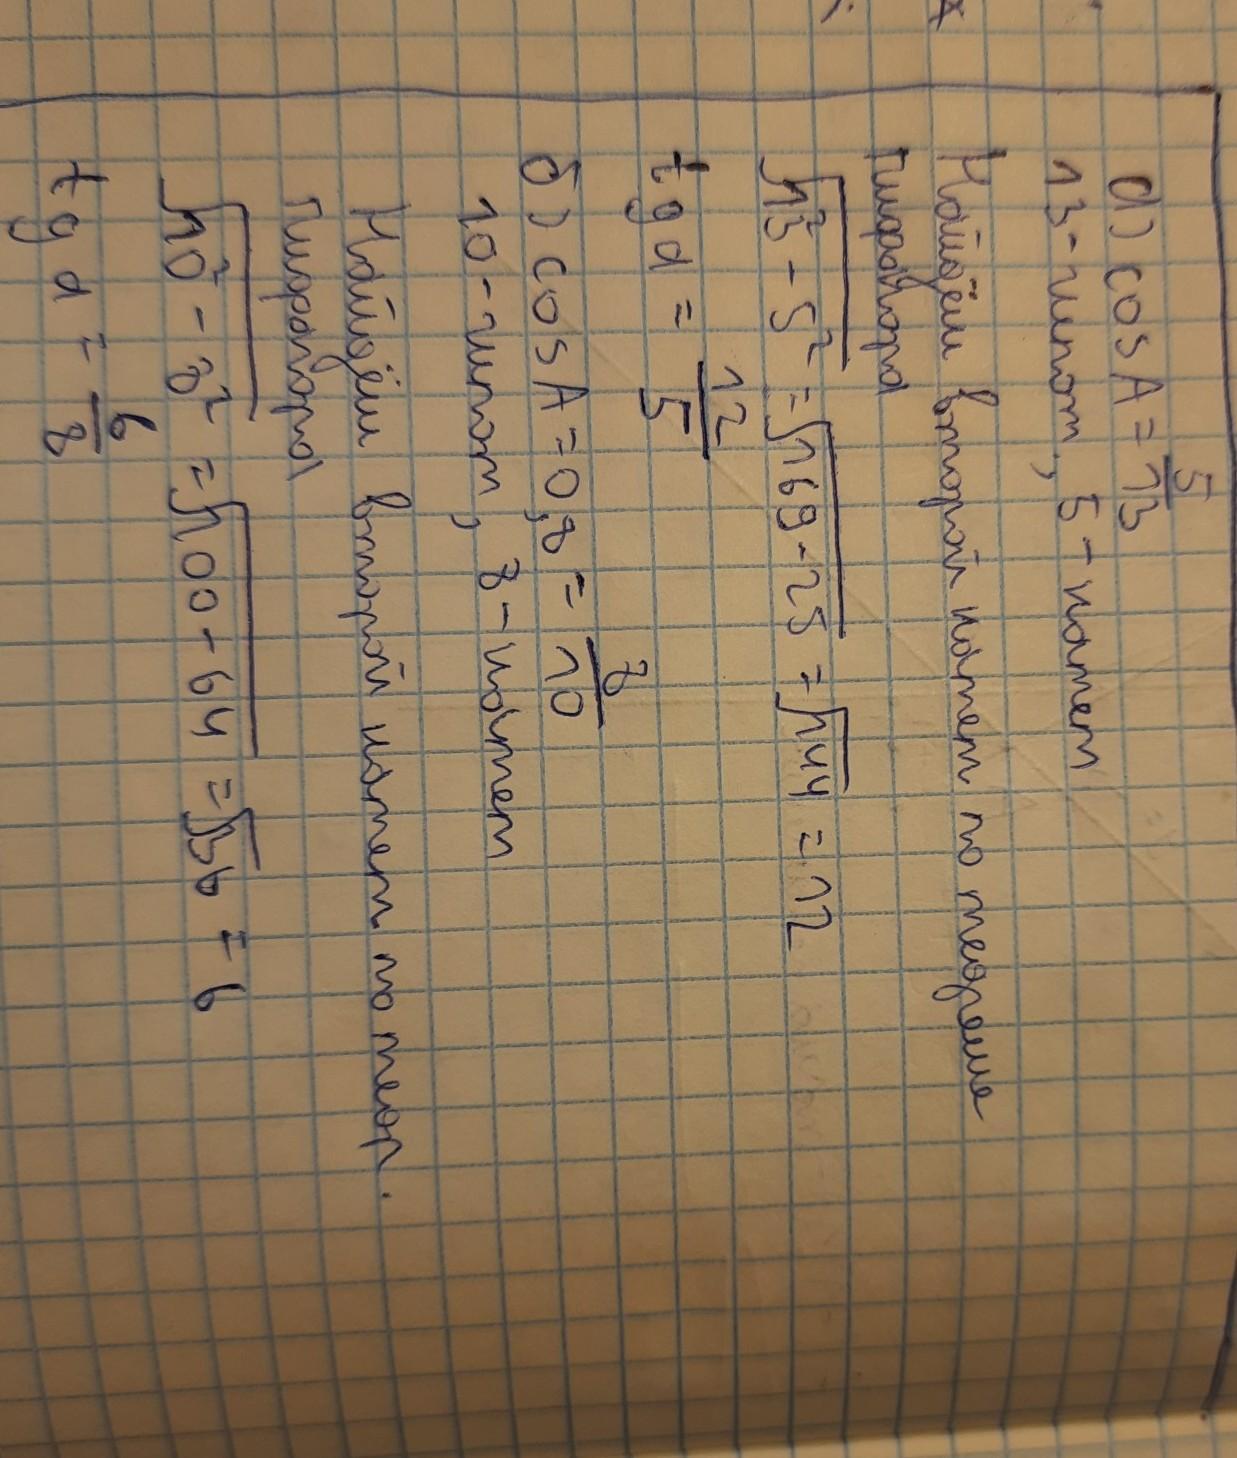 а) cos A = 5/13
13 - гипот, 5 - катет
Найдём второй катет по теореме
Пифагора
√13² - 5² = √169 - 25 = √144 = 12
tg α = 12/5
б) cos A = 0,8 = 8/10
10 - гипот, 8 - катет
Найдём второй катет по теор.
Пифагора
√10² - 8² = √100 - 64 = √36 = 6
tg α = 6/8